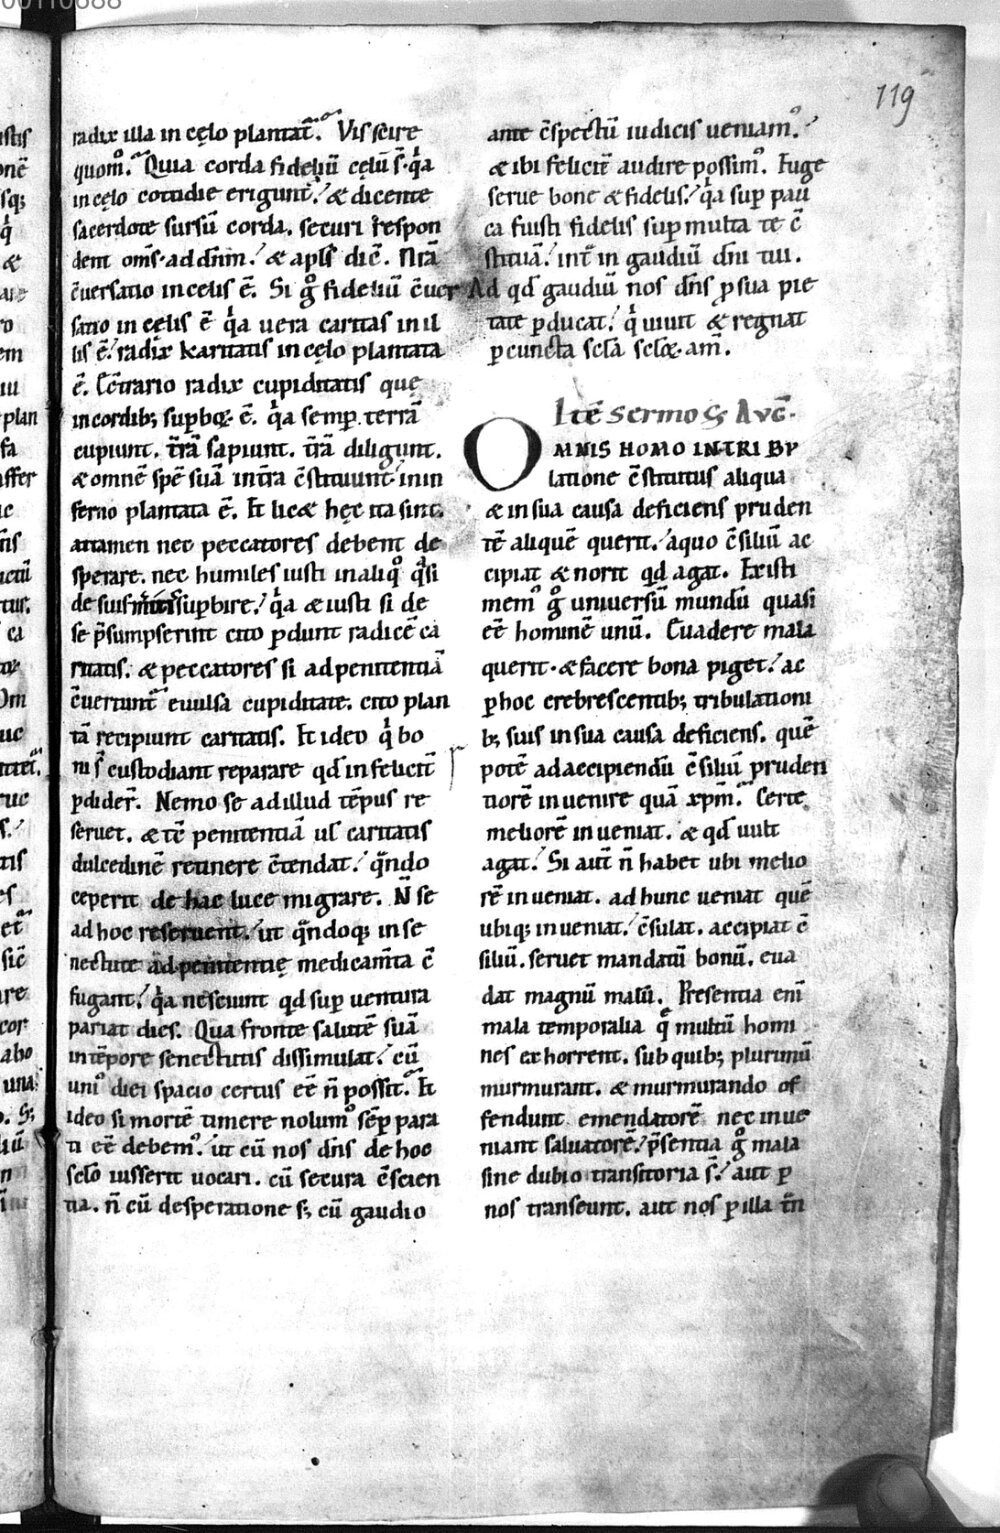 119
radix illa in cęlo plantat᷑. Vis scire
quom̊. Quia corda fideliū celū s̄. q̇a
in cęlo cottidie erigunt᷑. & dicente
sacerdote sursū corda. securi respon
dent om̄s. ad dn̄m. & apl̄s dic̄. Nr̄a
c̄uersatio in celis ē. Si g̊ fideliū c̄uer
satio in cęlis ē q̇a uera caritas in il
lis ē. radix karitatis in cęlo plantata
ē. Cc̄trario radix cupiditatis quę
in cordib; supboꝝ ē. q̇a semp terrā
cupiunt. t̄rā sapiunt. t̄rā diligunt.
& omnē spē suā in t̄ra c̄stituunt. in in
ferno plantata ē. Et lic& hęc ita sint.
attamen nec peccatores debent de
sperare. nec humiles iusti in aliq̊ q̇si
de suis superbire. q̇a & iusti si de
se p̄sumpserint cito ꝑdunt radicē ca
ritatis. & peccatores si ad penitentiā
c̄uertunt᷑ euulsa cupiditate. cito plan
tā recipiunt caritatis. Et ideo q̇ bo
ni s̄ custodiant reparare qd̄ infelicit̄
ꝑdider̄. Nemo se ad illud tēpus re
seruet. & tē penitentiā ul̄ caritatis
dulcedinē retinere c̄tendat. q̄ndo
ceperit de hac luce migrare. N̄ se
ad hoc reseruent. ut q̄ndoq; in se
nectute ad penitentię medicam̄ta c̄
fugant. q̇a nesciunt qd̄ sup uentura
pariat dies. Qua fronte salutē suā
in tēpore senectutis dissimulat. cū
uni᷒ diei spacio certus eē n̄ possit᷑. Et
ideo si mortē timere nolum᷒ sēp para
ti eē debem᷒. ut cū nos dn̄s de hoc
scl̄o iusserit uocari. cū secura c̄scien
tia. n̄ cū desperatione s; cū gaudio
ante c̄spectū iudicis ueniam᷒.
& ibi felicit̄ audire possim᷒. Euge
serue bone & fidelis. q̇a sup pau
ca fuisti fidelis sup multa te c̄
stituā. int̄ in gaudiū dn̄i tui.
Ad qd̄ gaudiū nos dn̄s ꝓ sua pie
tate ꝑducat. q̇ uiuit & regnat
ꝑ cuncta scl̄a scl̄oꝝ. am̄.
Itē sermo S Avḡ.
OMNIS HOMO IN TRIBV
latione c̄stitutus aliqua
& in sua causa deficiens pruden
tē aliquē querit. a quo c̄siliū ac
cipiat & norit qd̄ agat. Existi
mem᷒ g̊ uniuersū mundū quasi
eē hominē unū. Euadere mala
querit. & facere bona piget. ac
ꝑ hoc crebrescentib; tribulationi
b; suis in sua causa deficiens. quē
potē ad accipiendū c̄siliū pruden
tiorē inuenire quā xp̄m. Certe
meliorē inueniat. & qd̄ uult
agat. Si aut̄ n̄ habet ubi melio
rē inueniat. ad hunc ueniat quē
ubiq; inueniat. c̄sulat. accipiat c̄
siliū. seruet mandatū bonū. eua
dat magnū malū. Presentia eni᷒
mala temporalia q̨ multū homi
nes exhorrent. sub quib; plurimū
murmurant. & murmurando of
fendunt emendatorē nec inue
niant saluatorē. p̄sentia g̊ mala
sine dubio transitoria s̄. aut ꝑ
nos transeunt. aut nos ꝑ illa t̄n